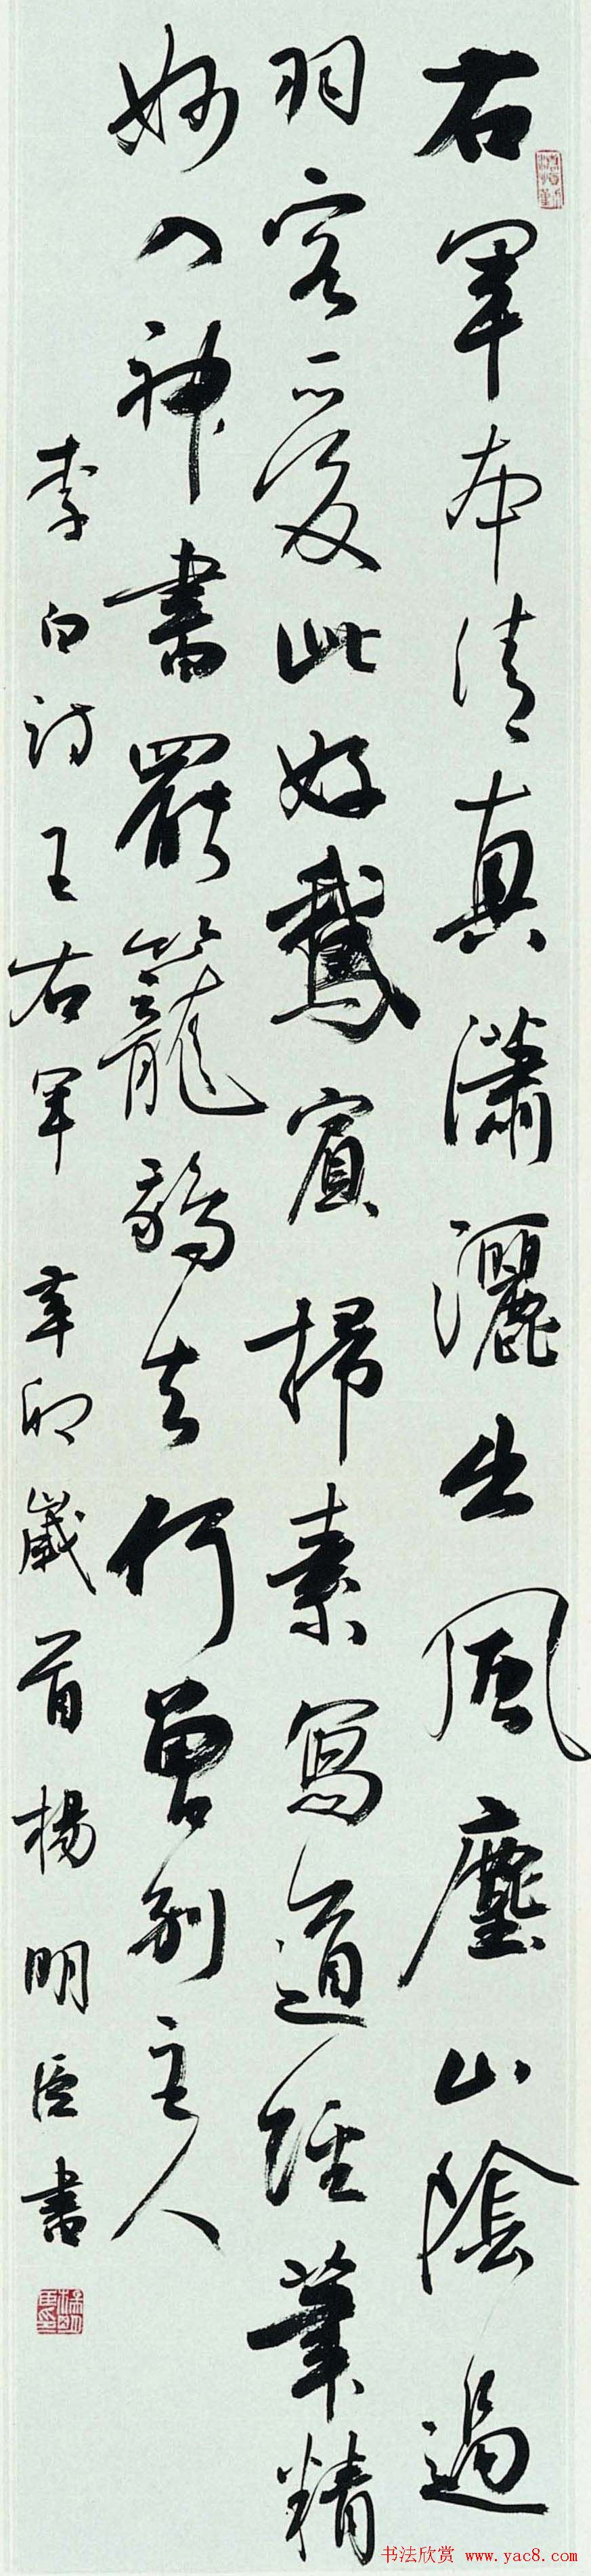 右軍本清真瀟灑出風塵山陰過
羽客愛此好鵞賓掃素寫道經筆精
妙入神書罷籠鵝去何曾別主人
李白詩王右軍 辛卯歲首楊明臣書
书法欣赏 www.yac8.com